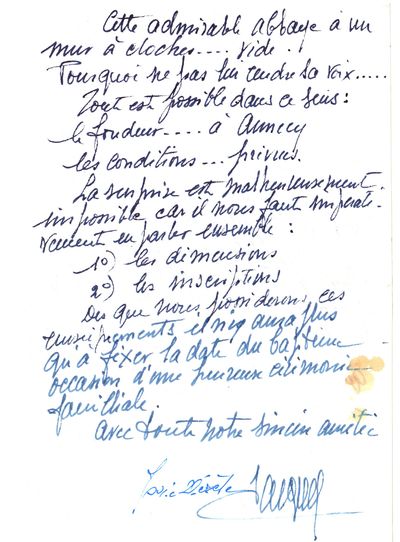 Cette admirable abbaye a un
mur à cloches.... vide.
Pourquoi ne pas lui rendre sa voix.....
Tout est possible dans ce sens :
le fondeur.... à Annecy
les conditions... prévues.
La surprise est malheureusement
impossible car il nous faut impérati-
vement en parler ensemble :
1°) les dimensions
2°) les inscriptions
Dès que nous possèderons ces
renseignements il n'y aura plus
qu'à fixer la date du baptême
occasion d'une heureuse cérémonie
familiale.
Avec toute notre sincère amitié
Jacques